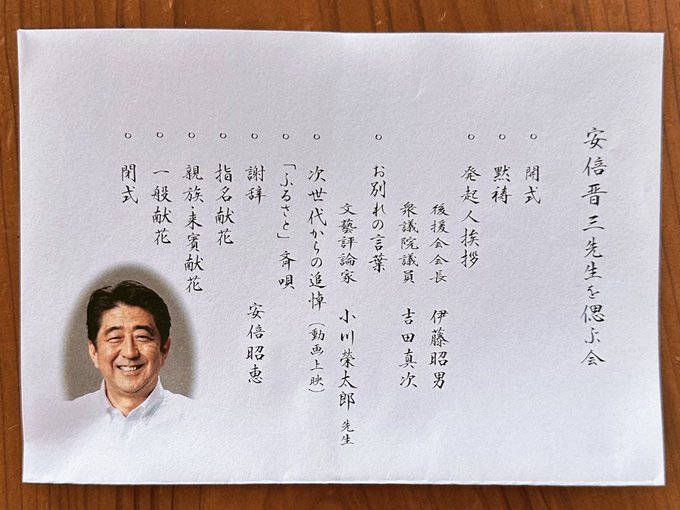 安倍晋三先生を偲ぶ会
○ 開式
○ 黙祷
○ 発起人挨拶
後援会会長 伊藤昭男
衆議院議員 吉田真次
○ お別れの言葉
文藝評論家 小川榮太郎 先生
○ 次世代からの追悼（動画上映）
○ 「ふるさと」斉唄
○ 謝辞 安倍昭恵
○ 指名献花
○ 親族・来賓献花
○ 一般献花
○ 閉式